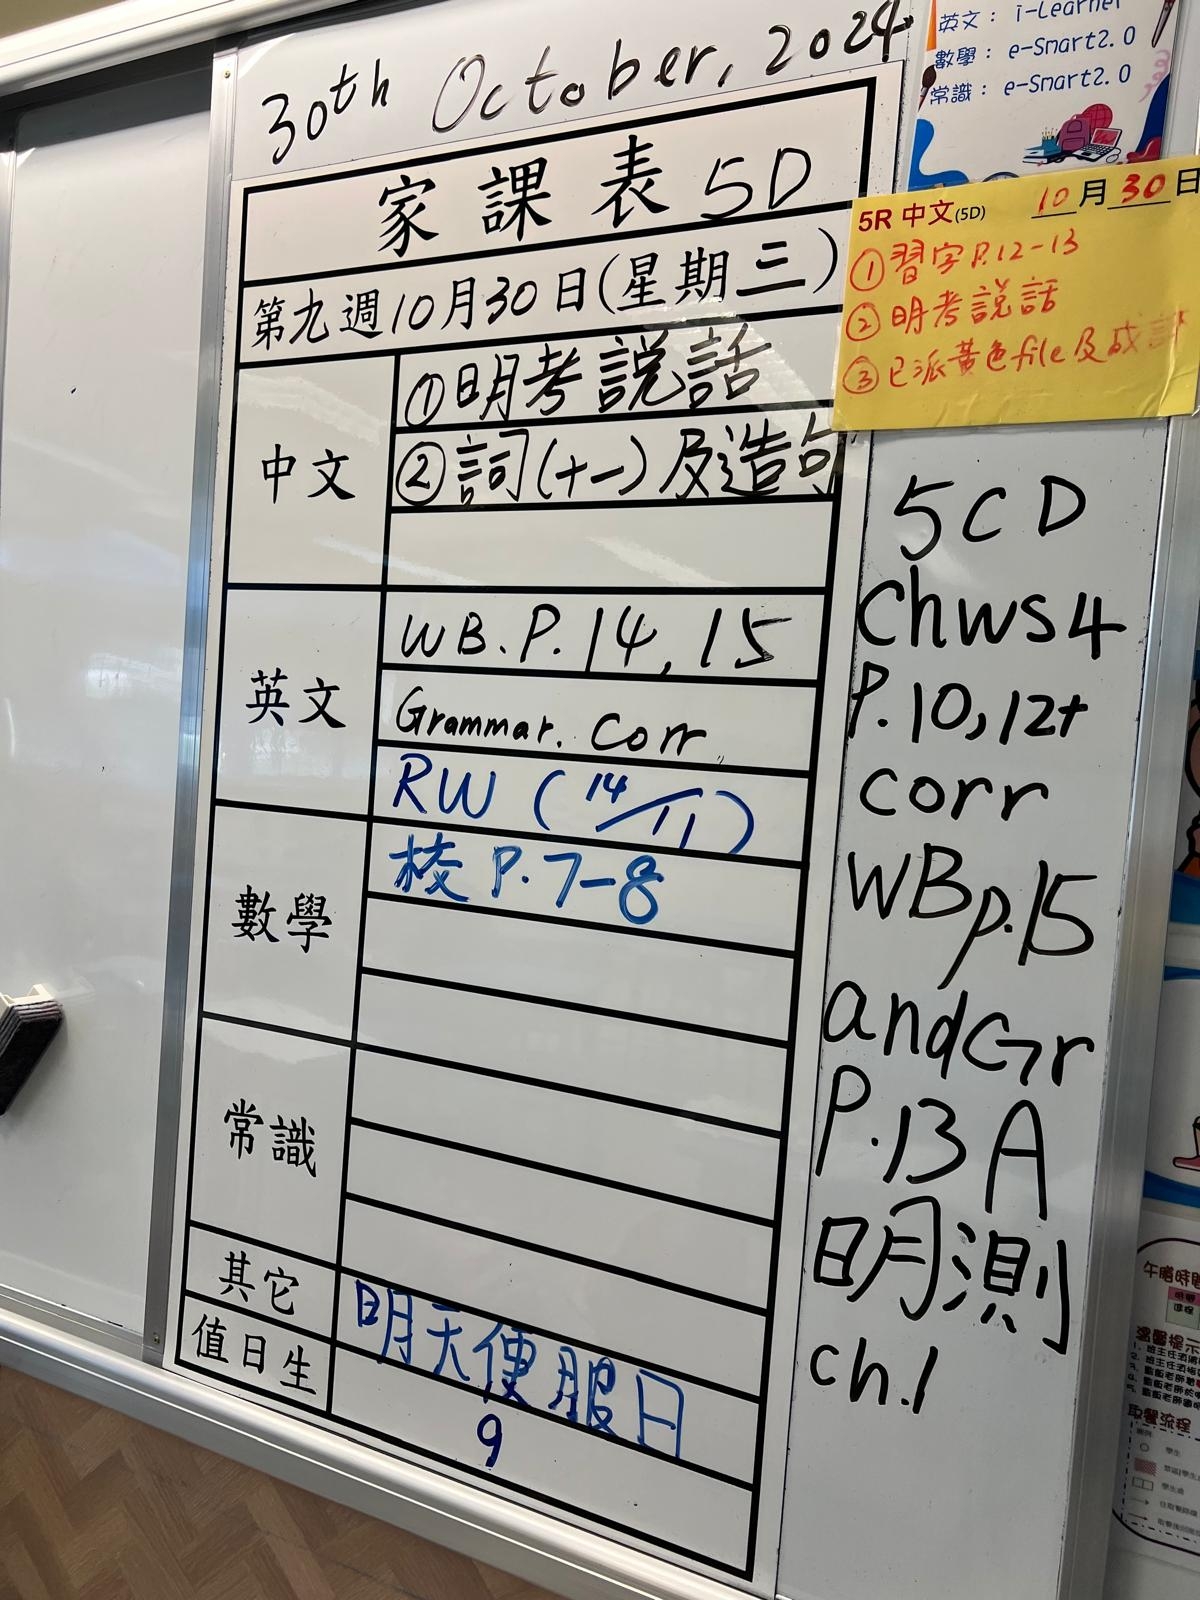 30th October, 2024
家課表 5D
第九週10月30日(星期三)
中文
①明考說話
②詞(十一)及造句
英文
WB.P.14,15
Grammar. Corr
RW (14/11)
數學
校 P.7-8
常識
其它
明天便服日
值日生
9
英文： i-Learner
數學： e-Smart2.0
常識： e-Smart2.0
5R 中文(5D) 10月30日
①習字P.12-13
②明考說話
③已派黃色file及成
5CD
Chws4
P.10,12+
corr
WBp.15
andGr
P.13 A
明測
ch.1
取餐流程